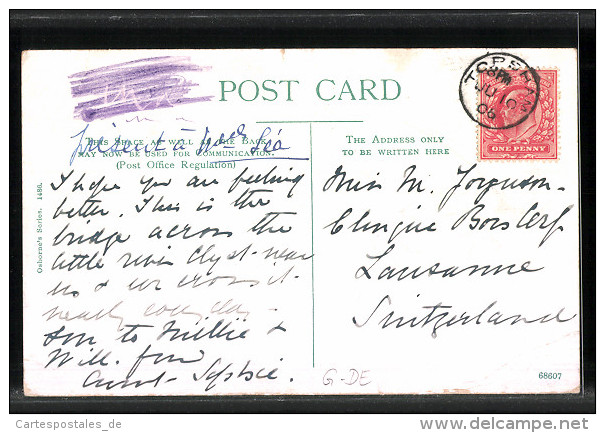 POST CARD
THIS SPACE AS WELL AS THE BACK
MAY NOW BE USED FOR COMMUNICATION.
(Post Office Regulation)
présent à
I hope you are feeling
better. This is the
bridge across the
little river Clyst near
us & we cross it
nearly every day.
Love to Millie &
Will. from
Aunt Sophie.
Osborne's Series. 1486.
THE ADDRESS ONLY
TO BE WRITTEN HERE
Miss M. Ferguson
Clinique
Lausanne
Switzerland
TOPSHAM
JU 10
08
ONE PENNY
G-DE
68607
Cartespostales_de
www.delcampe.net